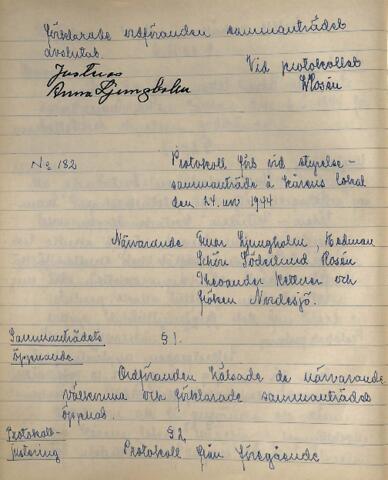 förklarade ordföranden sammanträdet
avslutat.
Justeras
Anna Ljungholm
Vid protokollet
Rosén
No 182
Protokoll förs vid styrelse-
sammanträde å kårens lokal
den 24. nov 1944
Närvarande Fruar Ljungholm, Hedman
Schön Söderlund Rosén
Theoander Kettner och
fröken Nordesjö.
Sammanträdets
öppnande
§ 1.
Ordföranden hälsade de närvarande
välkomna och förklarade sammanträdet
öppnat.
Protokoll-
justering
§ 2.
Protokoll från föregående